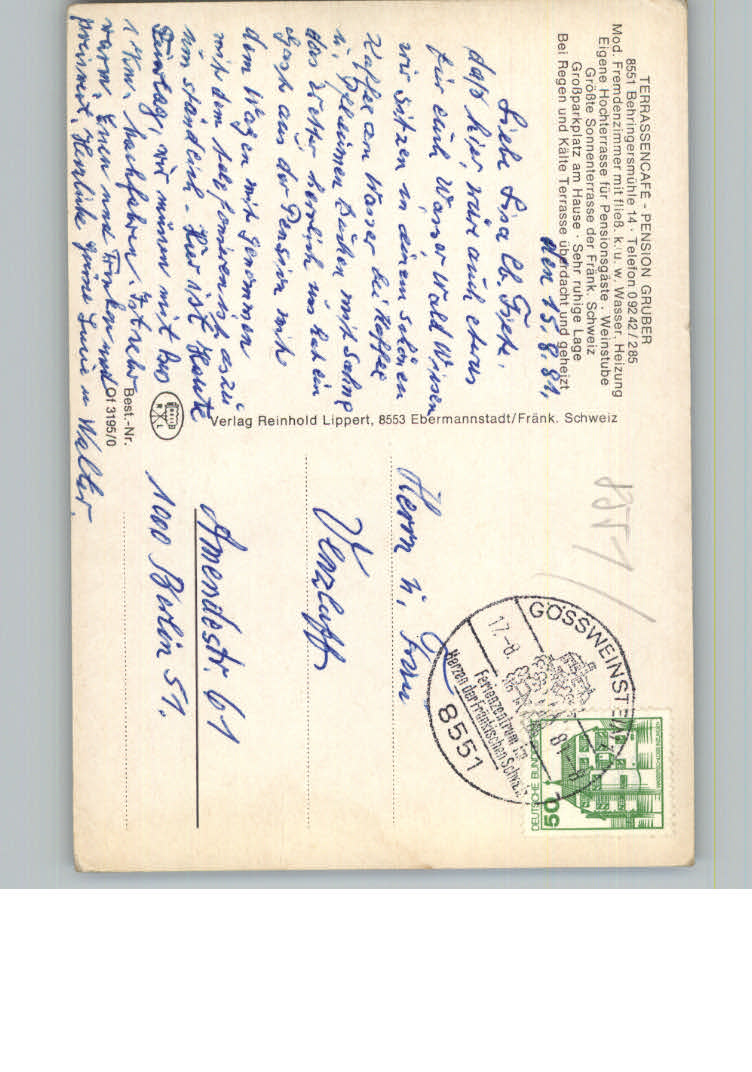 TERRASSENCAFE - PENSION GRUBER
8551 Behringersmühle 14 · Telefon 09242/285
Mod. Fremdenzimmer mit fließ. k. u. w. Wasser, Heizung
Eigene Hochterrasse für Pensionsgäste · Weinstube
Größte Sonnenterrasse der Fränk. Schweiz
Großparkplatz am Hause · Sehr ruhige Lage
Bei Regen und Kälte Terrasse überdacht und geheizt
den 15.8.81,
Liebe Lisa lb.
daß hier wäre auch etwas
für euch Wasser Wald Wiesen
wir sitzen in einem schönen
Kaffee am Wasser bei Kaffee
u. Kuchen mit Sahne
das Wetter herrlich uns hat ein
Gast aus der Pension mit
dem Wagen mit genommen
mit dem ist es zu
umständlich. Hier ist Heute
Feiertag, wir müssen mit Bus
1 Km. Ist sehr
warm. Essen und Trinken und
preiswert. Herzliche Grüsse u Walter.
Best.-Nr.
Of 3195/0
RVL
Verlag Reinhold Lippert, 8553 Ebermannstadt/Fränk. Schweiz
8551
GÖSSWEINSTEIN
17.-8.81-8
Ferienzentrum im
Herzen der Fränkischen Schweiz
8551
DEUTSCHE BUNDESPOST
50
Herrn u. Frau
Wenzlaff
Amendestr. 61
1000 Berlin 51.